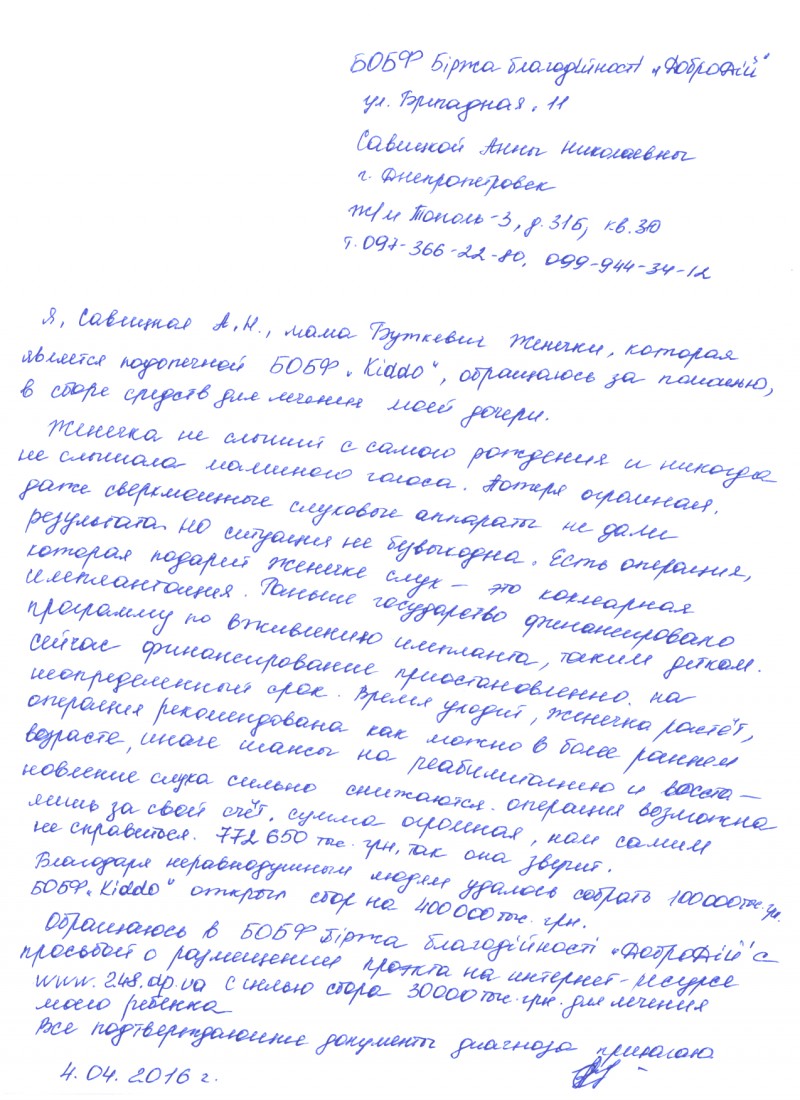 БОБФ Біржа благодійності „ДоброДій"
ул. Бригадная, 11
Савицкой Анны Николаевны
г. Днепропетровск
ж/м Тополь-3, д. 31Б, кв. 30
т. 097-366-22-80, 099-944-34-12
Я, Савицкая А.Н., мама Буткевич Женечки, которая
является подопечной БОБФ „Kiddo", обращаюсь за помощью,
в сборе средств для лечения моей дочери.
Женечка не слышит с самого рождения и никогда
не слышала маминого голоса. Потеря огромная.
даже сверхмощные слуховые аппараты не дали
результата. Но ситуация не безвыходна. Есть операция,
которая подарит Женечке слух – это кохлеарная
имплантация. Раньше государство финансировало
программу по вживлению импланта, таким деткам.
Сейчас финансирование приостановленно. на
неопределенный срок. Время уходит, Женечка растёт,
операция рекомендована как можно в более раннем
возрасте, иначе шансы на реабилитацию и восста-
новление слуха сильно снижаются. операция возможна
лишь за свой счёт, сумма огромная, нам самим
не справиться. 772 650 тыс. грн, так она звучит.
Благодаря неравнодушным людям удалось собрать 100000 тыс. гр.
БОБФ „Kiddo" открыл сбор на 400000 тыс. грн.
Обращаюсь в БОБФ Біржа благодійності „ДоброДій" с
просьбой о размещении проэкта на интернет-ресурсе
www.248.dp.ua с целью сбора 30000 тыс. грн. для лечения
моего ребенка
Все подтверждающие документы диагноза прилагаю
4.04.2016 г.